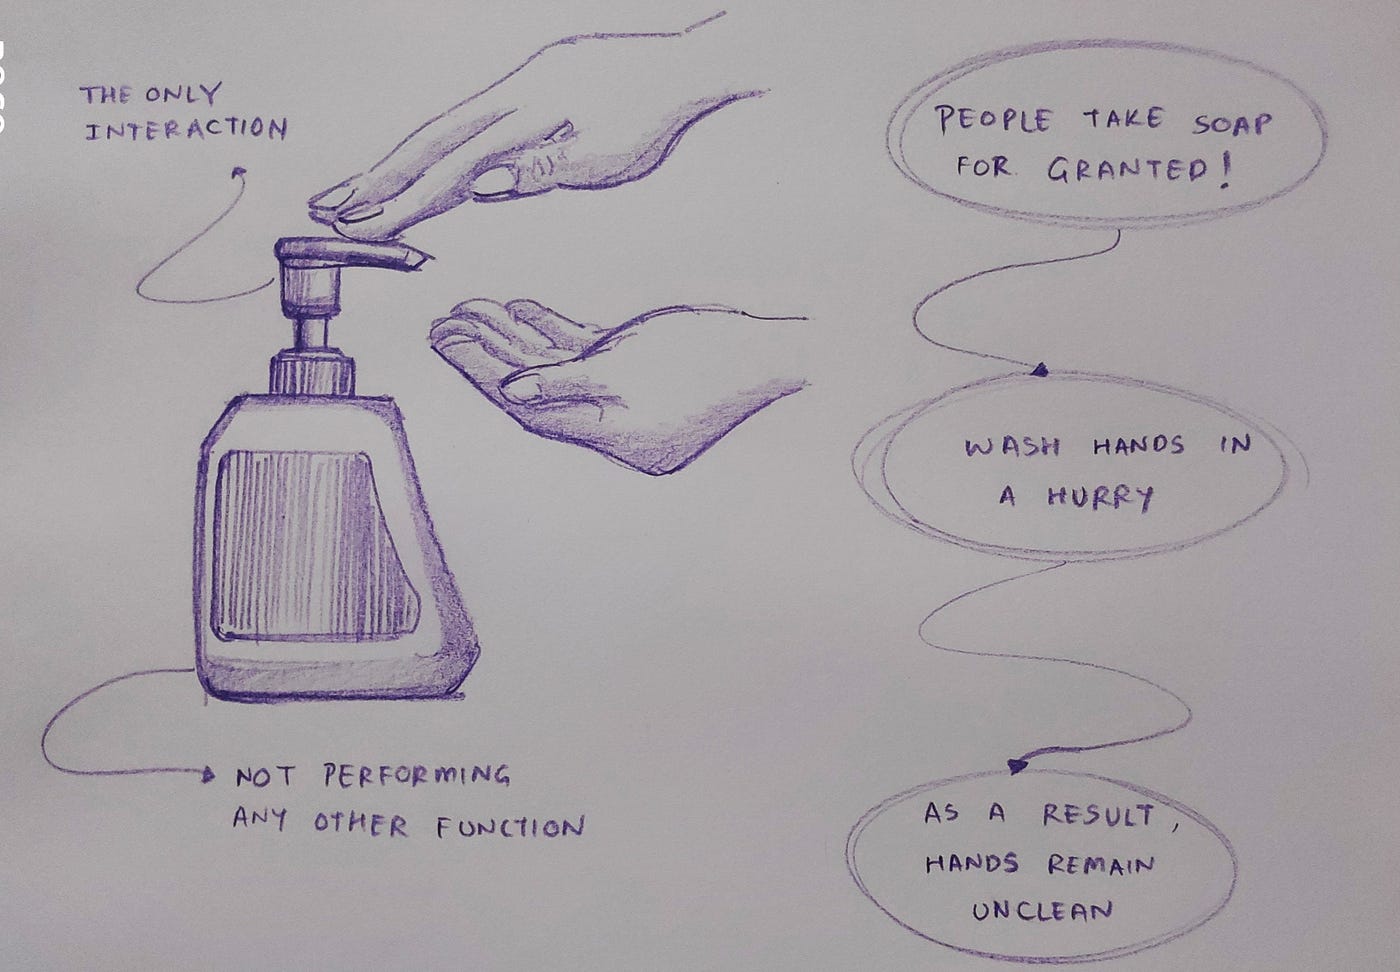 THE ONLY
INTERACTION
NOT PERFORMING
ANY OTHER FUNCTION
PEOPLE TAKE SOAP
FOR GRANTED!
WASH HANDS IN
A HURRY
AS A RESULT,
HANDS REMAIN
UNCLEAN